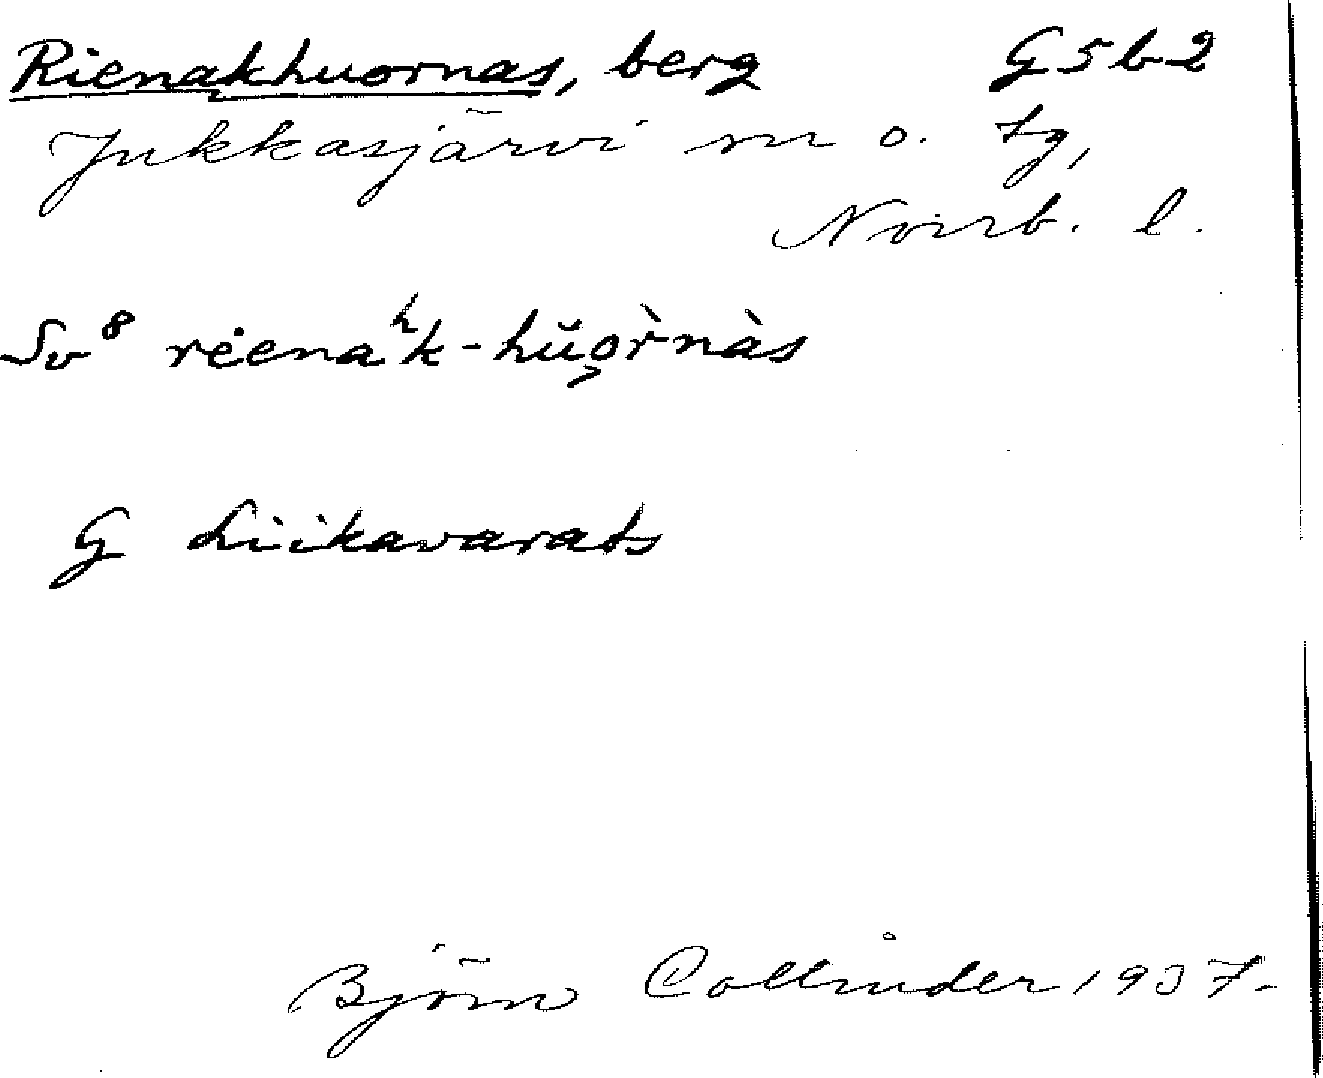 Rienakhuornas, berg G5b2
Jukkasjärvi m o. tg,
Norrb. l.
Sv⁸ rėenaʰk-hŭo̧r̀nàs
G Liikavarats
Björn Collinder 1937-